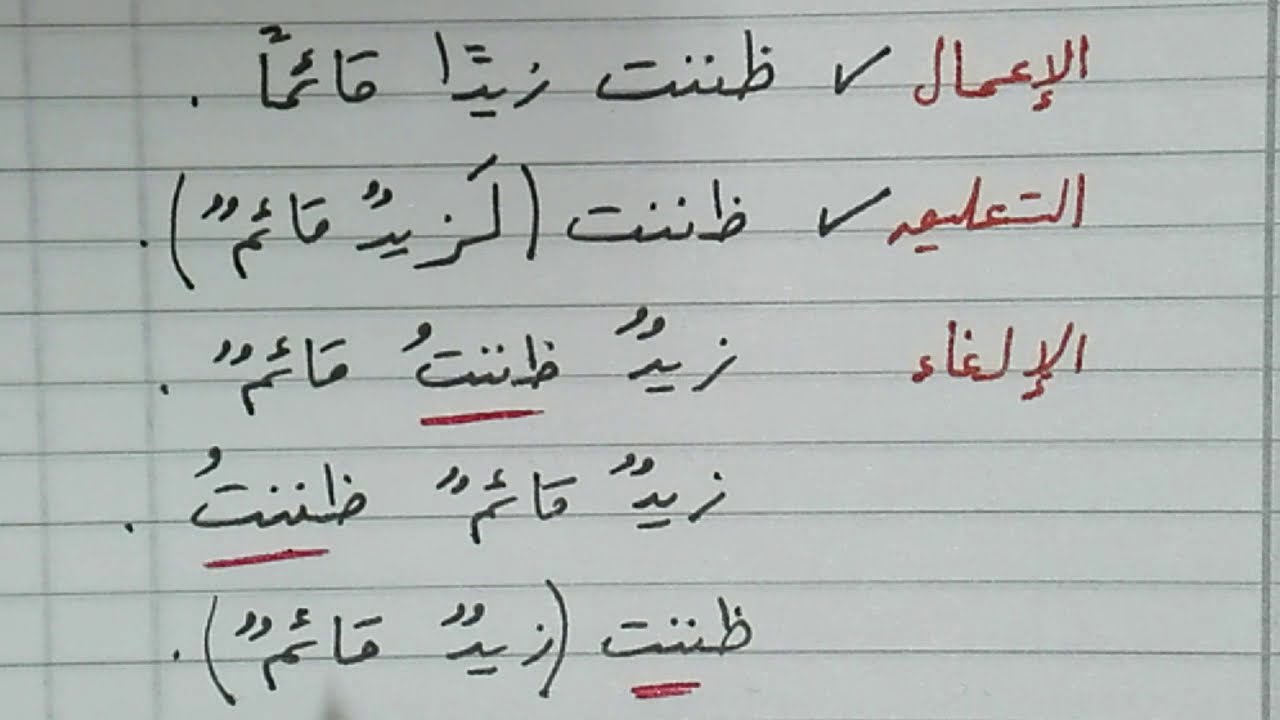 الإعمال ✓ ظننت زيدًا قائمًا .
التعليق ✓ ظننت (لَزيدٌ قائمٌ) .
الإلغاء زيدٌ ظننتُ قائمٌ .
زيدٌ قائمٌ ظننتُ .
ظننت (زيدٌ قائمٌ) .